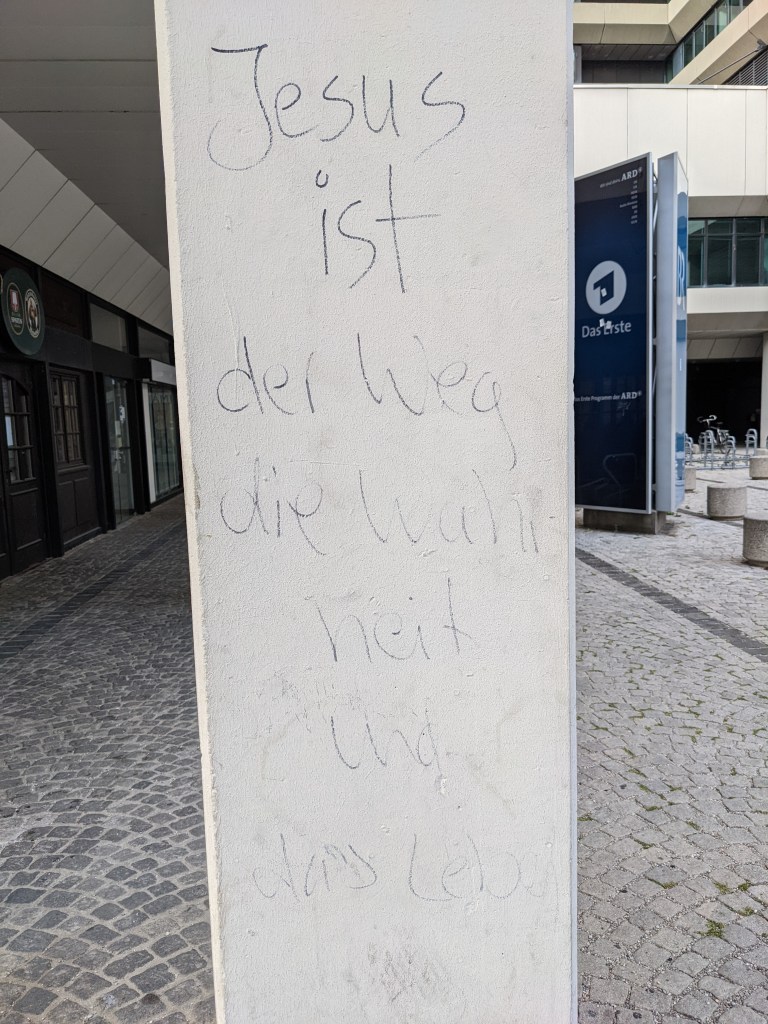 Jesus
ist
der Weg
die Wahr
heit
und
das Leben
Wir sind deins. ARD
Das Erste
Das Erste Programm der ARD